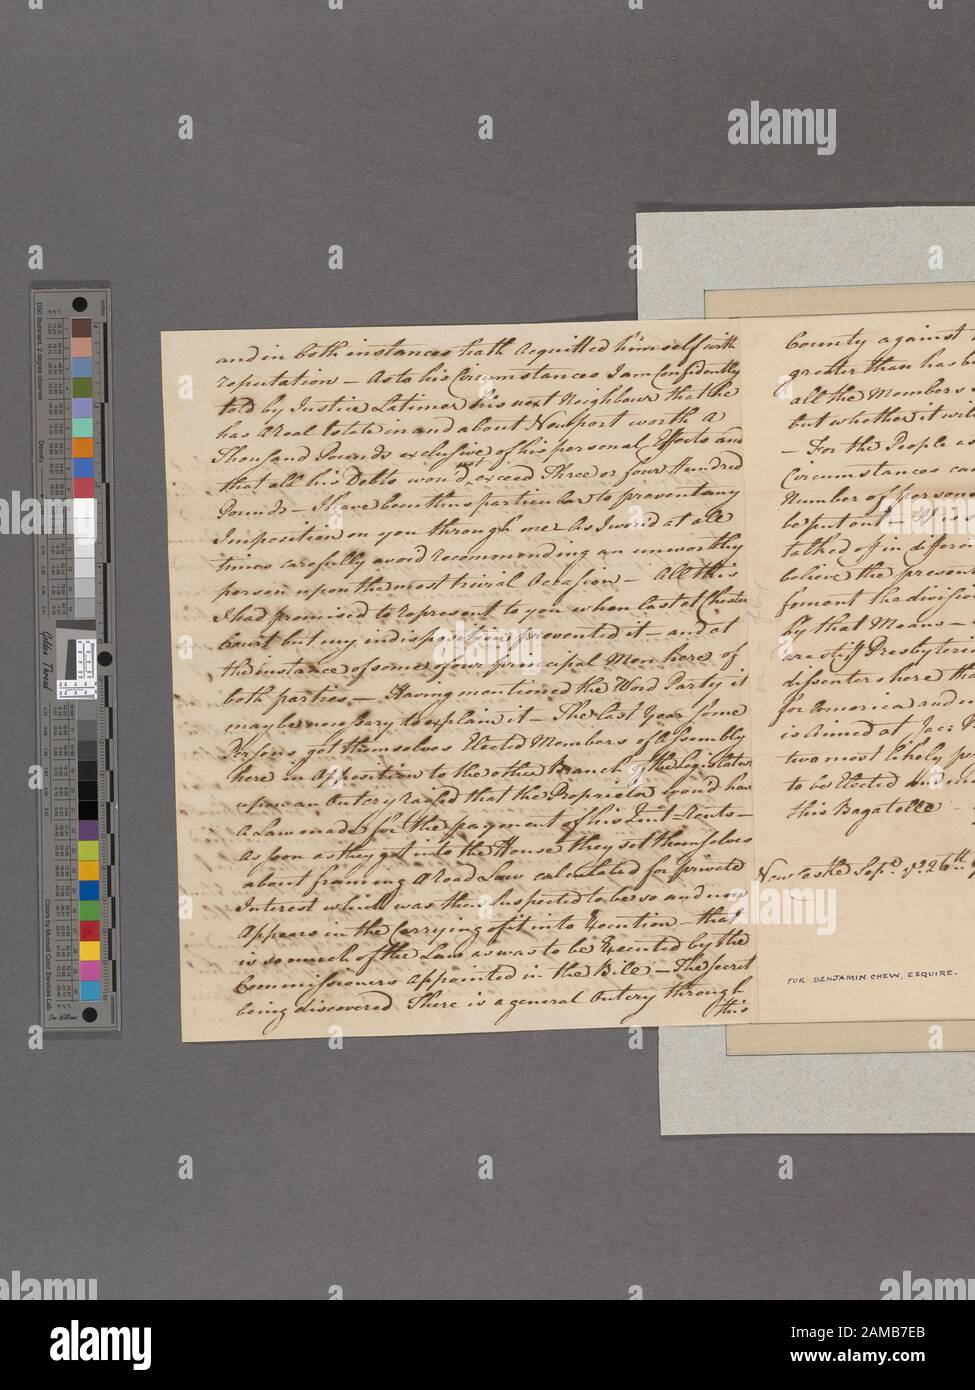 and in both instances hath acquitted himself with
reputation – As to his Circumstances I am Confidently
told by Justice Latimer his next Neighbour that he
has a Real Estate in and about Newport worth a
Thousand Pounds exclusive of his personal Effects and
that all his Debts wou'd not exceed Three or four Hundred
Pounds – I have been thus particular to prevent any
Imposition on you through me: As I wou'd at all
times carefully avoid recommending an unworthy
person upon the most trivial Occasion – All this
I had promised to represent to you when last at Chester
Court but my indisposition prevented it – and at
the instance of some of our principal Men here of
both parties – Having mentioned the Word Party it
may be necessary to explain it – The last Year some
Persons got themselves Elected Members of Assembly
here in Opposition to the other Branch of the Legislature
upon an Outcry raised that the Proprietor wou'd have
a Law made for the payment of his Quit-Rents –
As soon as they got into the House they set themselves
about framing a Road Law calculated for private
Interest which was then Suspected to be so and now
Appears in the Carrying of it into Execution – that
is so much of the Law as was to be Executed by the
Commissioners Appointed in the Bill – The Secret
being discovered There is a general Outcry through
this
County against
greater than has be
all the Members
but whether it wi
– For the People a
Circumstances ca
Number of persons
be put out – It is
talked of in differen
believe the present
foment the division
by that Means –
are stiff Presbyteria
dissenters here tha
for America and
is aimed at
two most likely
to be Elected and
this Bagatelle
New Castle Sept. ye 26th
FOR BENJAMIN CHEW, ESQUIRE.
Golden Thread
D50 Illuminant, 2 degree observer
Density
Colors by Munsell Color Services Lab
inches
centimeters
alamy
Image ID: 2AMB7EB
www.alamy.com